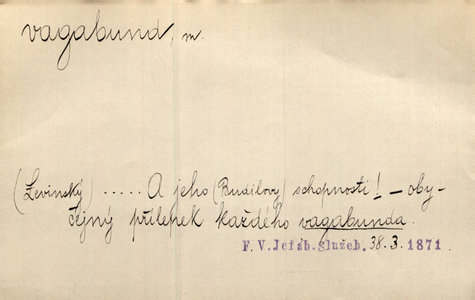 vagabund, m.
(Levinský) ..... A jeho (Budilovy) schopnosti! – oby-
čejný přílepek každého vagabunda.
F. V. Jeřáb. Služeb. 38. 3. 1871